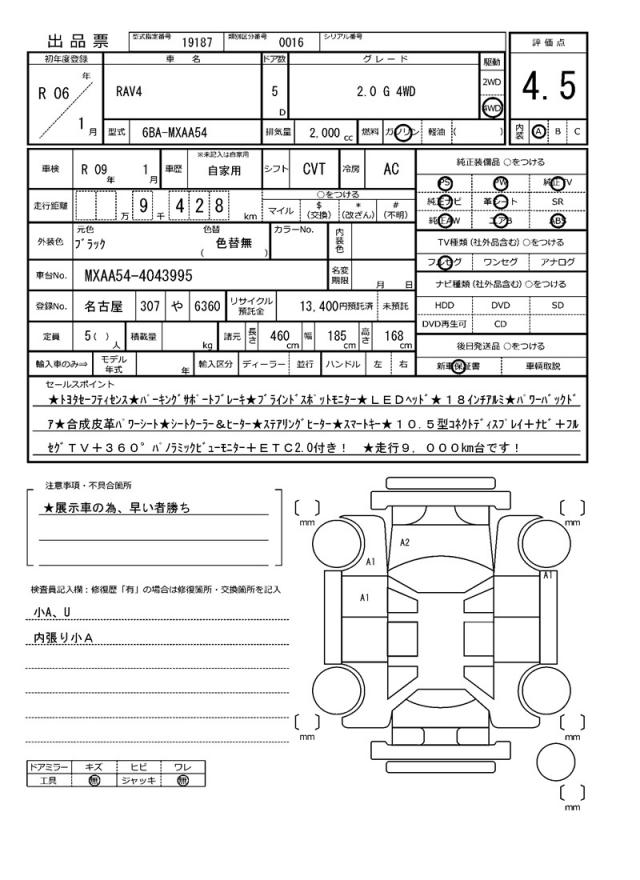 出品票 型式指定番号 19187 類別区分番号 0016 シリアル番号
評価点
4.5
内装 A B C
初年度登録 車名 ドア数 グレード 駆動
R 06 年 1 月 RAV4 5 D 2.0 G 4WD 2WD 4WD
型式 6BA-MXAA54 排気量 2,000 cc 燃料 ガソリン 軽油 ( )
車検 R 09 年 1 月 車歴 ※未記入は自家用 自家用 シフト CVT 冷房 AC
走行距離 万 9 千 4 2 8 km
○をつける
マイル $ (交換) * (改ざん) # (不明)
外装色 元色 ブラック 色替 ( 色替無 ) カラーNo. 内装色
車台No. MXAA54-4043995 名変期限 月 日
登録No. 名古屋 307 や 6360 リサイクル預託金 13,400円預託済 未預託
定員 5( ) 人 積載量 kg 諸元 長さ 460 cm 幅 185 cm 高さ 168 cm
輸入車のみ⇒ モデル年式 年 輸入区分 ディーラー 並行 ハンドル 左 右
純正装備品 ○をつける
PS PW 純正TV
純正ナビ 革シート SR
純正AW エアB ABS
TV種類 (社外品含む) ○をつける
フルセグ ワンセグ アナログ
ナビ種類 (社外品含む) ○をつける
HDD DVD SD
DVD再生可 CD
後日発送品 ○をつける
新車保証書 車輌取説
セールスポイント
★トヨタセーフティセンス★パーキングサポートブレーキ★ブラインドスポットモニター★ＬＥＤヘッド★１８インチアルミ★パワーバックド
ア★合成皮革パワーシート★シートクーラー&ヒーター★ステアリングヒーター★スマートキー★１０.５型コネクトディスプレイ＋ナビ＋フル
セグＴＶ＋３６０°パノラミックビューモニター＋ＥＴＣ2.0付き！ ★走行９，０００km台です！
注意事項・不具合箇所
★展示車の為、早い者勝ち
検査員記入欄：修復歴「有」の場合は修復箇所・交換箇所を記入
小A、U
内張り小Ａ
ドアミラー キズ ヒビ ワレ
工具 無 ジャッキ 無
mm
mm
A2
A1
A1
A1
mm
mm
mm